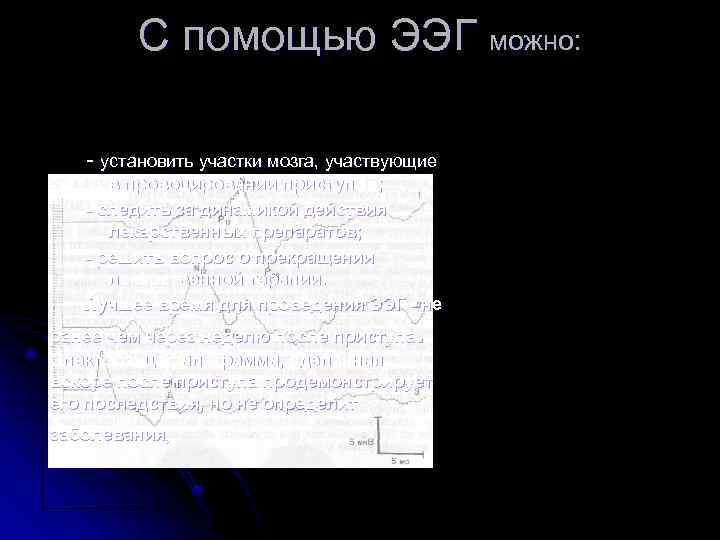 С помощью ЭЭГ можно:
- установить участки мозга, участвующие
в провоцировании
- следить за динамикой действия
лекарственных препаратов;
- решить вопрос о прекращении
терапии.
Лучшее время для проведения ЭЭГ - не
ранее чем через неделю после приступа.
вскоре после приступа продемонстрирует
его последствия, но не определит
заболевания.
5 мкВ
5 мс